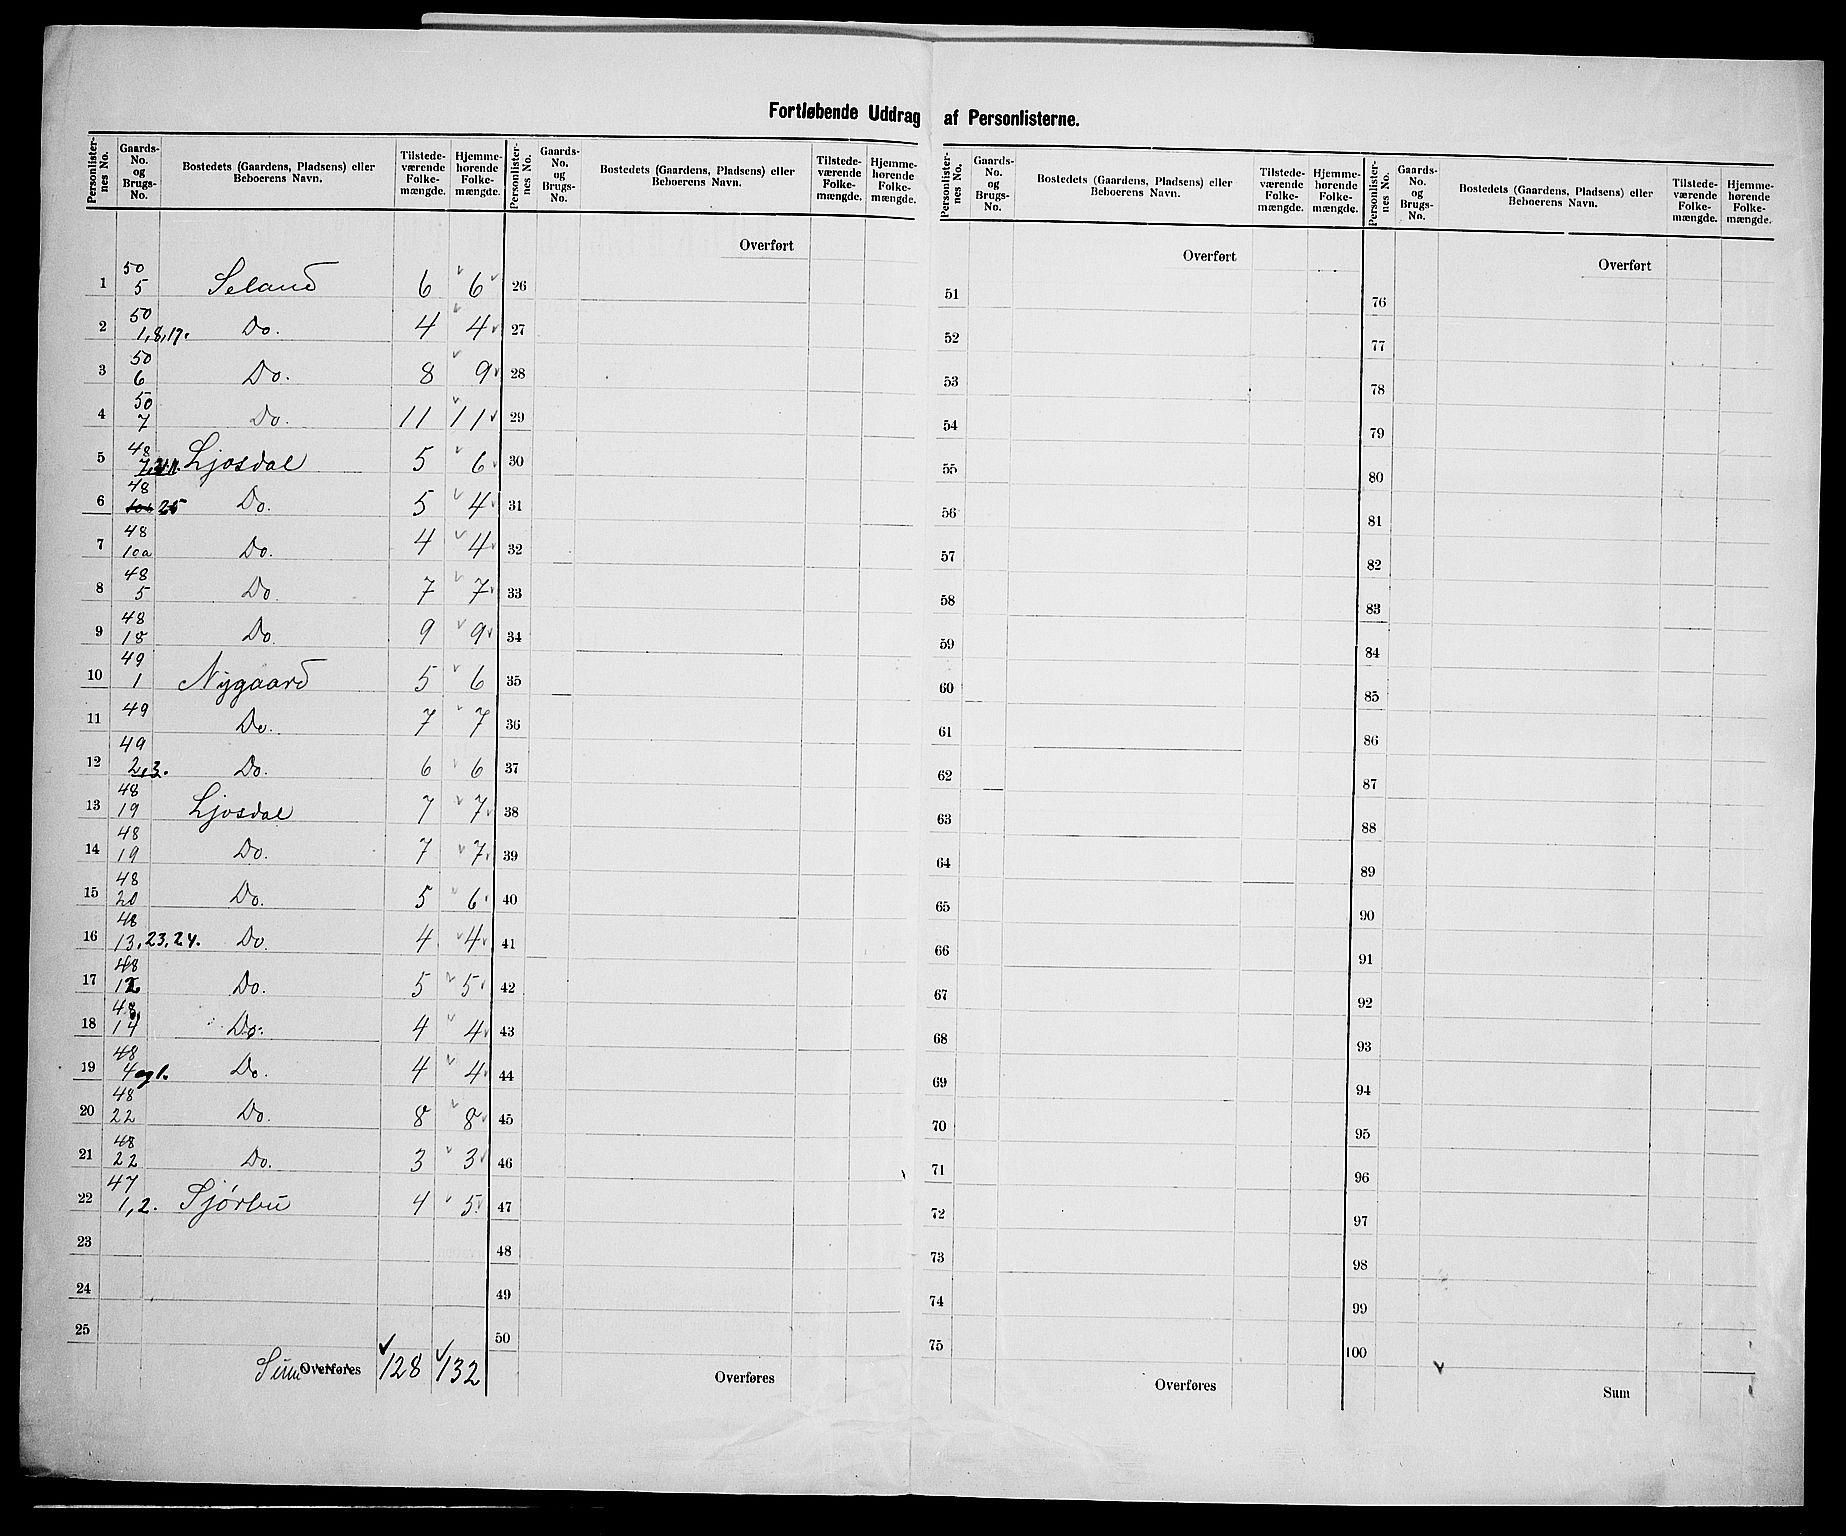 Fortløbende Uddrag af Personlisterne.
Personlister-nes No. Gaards-No. og Brugs-No. Bostedets (Gaardens, Pladsens) eller Beboerens Navn. Tilstede-værende Folke-mængde. Hjemme-hørende Folke-mængde.
Personlister-nes No. Gaards-No. og Brugs-No. Bostedets (Gaardens, Pladsens) eller Beboerens Navn. Tilstede-værende Folke-mængde. Hjemme-hørende Folke-mængde.
Personlister-nes No. Gaards-No. og Brugs-No. Bostedets (Gaardens, Pladsens) eller Beboerens Navn. Tilstede-værende Folke-mængde. Hjemme-hørende Folke-mængde.
Personlister-nes No. Gaards-No. og Brugs-No. Bostedets (Gaardens, Pladsens) eller Beboerens Navn. Tilstede-værende Folke-mængde. Hjemme-hørende Folke-mængde.
Overført Overført Overført
1 50 5 Seland 6 6 26 51 76
2 50 1,8,17. Do. 4 4 27 52 77
3 50 6 Do. 8 9 28 53 78
4 50 7 Do. 11 11 29 54 79
5 48 Ljosdal 5 6 30 55 80
6 48 25 Do. 5 4 31 56 81
7 48 10a Do. 4 4 32 57 82
8 48 5 Do. 7 7 33 58 83
9 48 18 Do. 9 9 34 59 84
10 49 1 Nygaard 5 6 35 60 85
11 49 Do. 7 7 36 61 86
12 49 2,3. Do. 6 6 37 62 87
13 48 19 Ljosdal 7 7 38 63 88
14 48 19 Do. 7 7 39 64 89
15 48 20 Do. 5 6 40 65 90
16 48 13,23,24. Do. 4 4 41 66 91
17 48 12 Do. 5 5 42 67 92
18 48 14 Do. 4 4 43 68 93
19 48 4 og 1. Do. 4 4 44 69 94
20 48 22 Do. 8 8 45 70 95
21 48 22 Do. 3 3 46 71 96
22 47 1,2. Sjørbu 4 5 47 72 97
23 48 73 98
24 49 74 99
25 50 75 100
Sum Overføres 128 132 Overføres Overføres Sum